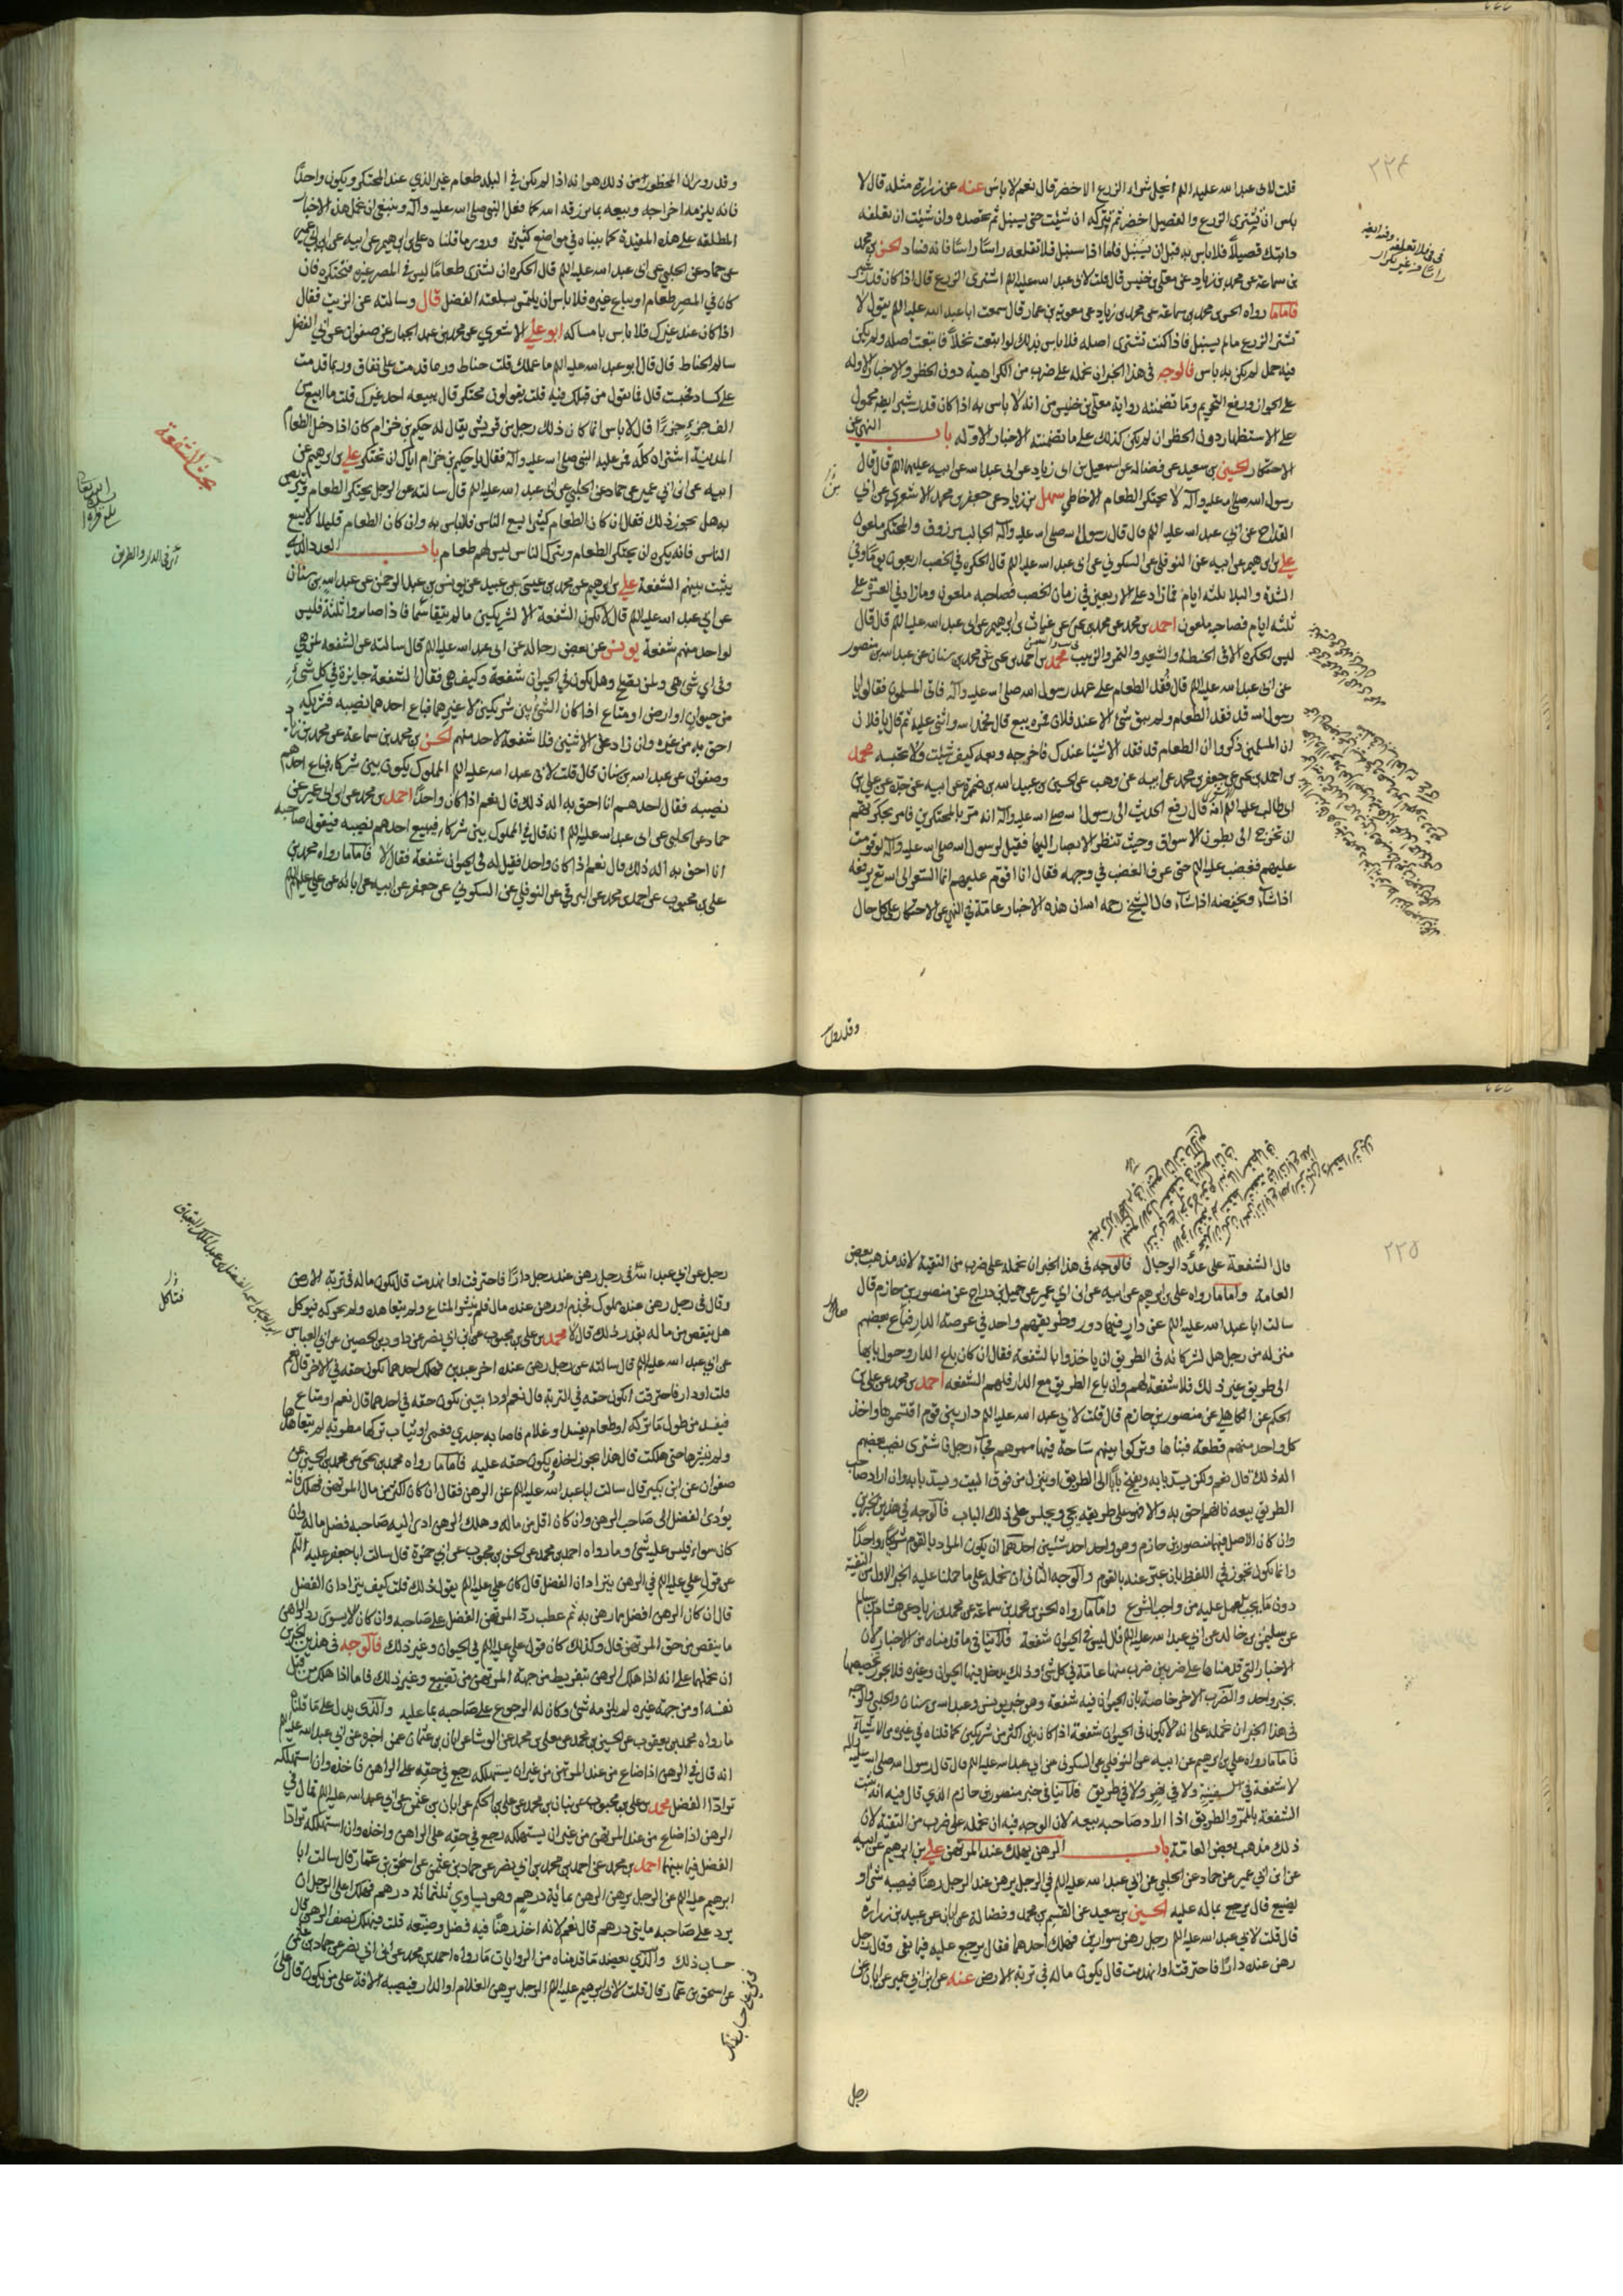 ٢٢٤
قلت لابى عبد الله عليه السلم ايحل شراء الزرع الاخضر قال نعم لا باس عنه عن زرارة مثله قال لا
باس ان تشترى الزرع والقصيل اخضر ثم تتركه ان شئت حتى يسنبل ثم تحصده وان شئت ان تعلفه
دابتك قصيلا فلا باس به قبل ان يسنبل فاما اذا سنبل فلا تعلفه راسا راسا فانه فساد الحسن بن محمد
بن سماعة عن محمد بن زياد عن معلى بن خنيس قال قلت لابى عبد الله عليه السلم اشترى الزرع قال اذا كان قدر شبر
فاما ما رواه الحسن بن محمد بن سماعة عن محمد بن زياد عن معوية بن عمار قال سمعت ابا عبد الله عليه السلم يقول لا
تشتر الزرع ما لم يسنبل فاذا كنت تشترى اصله فلا باس بذلك او ابتعت نخلا فابتعت اصله ولم يكن
فيه حمل لم يكن به باس فالوجه فى هذا الخبر ان نحمله على ضرب من الكراهية دون الحظر والاخبار الاوله
على الجواز ورفع التحريم وما تضمنته رواية معلى بن خنيس من انه لا باس به اذا كان قدر شبر ايضا محمول
على الاستظهار دون الحظر ان لم يكن كذلك على ما تضمنته الاخبار الاوله باب النهى عن
الاحتكار الحسين بن سعيد عن فضاله عن اسمعيل بن ابى زياد عن ابى عبد الله عن ابيه عليهما السلم قال قال
رسول الله صلى الله عليه وآله لا يحتكر الطعام الا خاطئ سهل بن زياد عن جعفر بن محمد الاشعرى عن ابن
القداح عن ابى عبد الله عليه السلم قال قال رسول الله صلى الله عليه وآله الجالب مرزوق والمحتكر ملعون
على بن ابرهيم عن ابيه عن النوفلى عن السكونى عن ابى عبد الله عليه السلم قال الحكرة فى الخصب اربعون يوما وفى
الشدة والبلا ثلثه ايام فما زاد على الاربعين فى زمان الخصب فصاحبه ملعون وما زاد فى العسرة على
ثلثه ايام فصاحبه ملعون احمد بن محمد عن محمد بن يحيى عن غياث بن ابرهيم عن ابى عبد الله عليه السلم قال قال
ليس الحكرة الا فى الحنطة والشعير والتمر والزبيب محمد بن احمد بن يحيى عن محمد بن سنان عن عبد الله بن منصور
عن ابى عبد الله عليه السلم قال فقد الطعام على عهد رسول الله صلى الله عليه وآله فاتى المسلمون فقالوا يا
رسول الله قد فقد الطعام ولم يبق شئ الا عند فلان فمره يبيع قال فحمد الله واثنى عليه ثم قال يا فلان
ان المسلمين ذكروا ان الطعام قد فقد الا شيئا عندك فاخرجه وبعه كيف شئت ولا تحبسه محمد
بن احمد بن يحيى عن جعفر بن محمد عن ابيه عن وهب عن الحسين بن عبيد الله بن ضمرة عن ابيه عن جده عن على بن
ابى طالب عليهم السلم انه قال رفع الحديث الى رسول الله صلى الله عليه وآله انه مر بالمحتكرين فامر بحكرتهم
ان تخرج الى بطون الاسواق وحيث تنظر الابصار اليها فقيل لرسول الله صلى الله عليه وآله لو قومت
عليهم فغضب عليه السلم حتى عرف الغضب فى وجهه فقال انا اقوم عليهم انما السعر الى الله تع يرفعه
اذا شاء ويخفضه اذا شاء قال الشيخ رحمه الله ان هذه الاخبار عامة فى النهى عن الاحتكار على كل حال
وقد روى
وقد روى ان المحظور من ذلك هو انه اذا لم يكن فى البلد طعام غير الذي عند المحتكر ويكون واحدا
فانه يلزمه اخراجه وبيعه بما يرزقه الله كما فعل النبى صلى الله عليه وآله وينبغى ان نحمل هذه الاخبار
المطلقه على هذه المقيدة كما بيناه فى مواضع كثيرة وروى ما قلناه على بن ابرهيم عن ابيه عن ابن ابى عمير
عن حماد عن الحلبى عن ابى عبد الله عليه السلم قال الحكرة ان تشترى طعاما ليس فى المصر غيره فتحتكره فان
كان فى المصر طعام او يباع غيره فلا باس ان يلتمس بسلعته الفضل قال وسالته عن الزيت فقال
اذا كان عند غيرك فلا باس بامساكه ابو على الاشعرى عن محمد بن عبد الجبار عن صفوان عن ابى الفضل
سالم الحناط قال قال ابو عبد الله عليه السلم ما عملك قلت حناط وربما قدمت على نفاق وربما قدمت
على كساد فحبست قال فما يقول من قبلك فيه قلت يقولون محتكر قال يبيعه احد غيرك قلت ما ابيع من
الف جزء جزءا قال لا باس انما كان ذلك رجل من قريش يقال له حكيم بن حزام كان اذا دخل الطعام
المدينة اشتراه كله فمر عليه النبى صلى الله عليه وآله فقال يا حكيم بن حزام اياك ان تحتكر على بن ابرهيم عن
ابيه عن ابن ابى عمير عن حماد عن الحلبى عن ابى عبد الله عليه السلم قال سالته عن الرجل يحتكر الطعام ويتربص
به هل يجوز ذلك فقال ان كان الطعام كثيرا يسع الناس فلا باس به وان كان الطعام قليلا لا يسع
الناس فانه يكره ان يحتكر الطعام ويترك الناس ليس لهم طعام باب العدد الذى
يثبت بينهم الشفعة على بن ابرهيم عن محمد بن عيسى بن عبيد عن يونس بن عبد الرحمن عن عبد الله بن سنان
عن ابى عبد الله عليه السلم قال لا تكون الشفعة الا لشريكين ما لم يتقاسما فاذا صاروا ثلثة فليس
لواحد منهم شفعة يونس عن بعض رجاله عن ابى عبد الله عليه السلم قال سالته عن الشفعة لمن هى
وفى اى شئ هى ولمن تصلح وهل تكون فى الحيوان شفعة وكيف هى فقال الشفعة جايزة فى كل شئ
من حيوان او ارض او متاع اذا كان الشئ بين شريكين لا غيرهما فباع احدهما نصيبه فشريكه
احق به من غيره وان زاد على الاثنين فلا شفعة لاحد منهم الحسن بن محمد بن سماعة عن محمد بن زياد
وصفوان عن عبد الله بن سنان قال قلت لابى عبد الله عليه السلم المملوك يكون بين شركاء فباع احدهم
نصيبه فقال احدهم انا احق به اله ذلك قال نعم اذا كان واحدا احمد بن محمد عن ابن ابى عمير عن
حماد عن الحلبى عن ابى عبد الله عليه السلم انه قال فى المملوك بين شركاء فيبيع احدهم نصيبه فيقول صاحبه
انا احق به اله ذلك قال نعم اذا كان واحدا فقيل له فى الحيوان شفعة فقال لا فاما ما رواه محمد بن
على بن محبوب عن احمد بن محمد عن البرقى عن النوفلى عن السكونى عن جعفر عن ابيه عن ابائه عن على عليهم السلم
بحث الشفعة
آن فى الدار والطريق
٢٢٥
قال الشفعة على عدد الرجال فالوجه فى هذا الخبر ان نحمله على ضرب من التقية لانه مذهب بعض
العامة واما ما رواه على بن ابرهيم عن ابيه عن ابن ابى عمير عن جميل بن دراج عن منصور بن حازم قال
سالت ابا عبد الله عليه السلم عن دار فيها دور وطريقهم واحد فى عرصة الدار فباع بعضهم
منزله من رجل هل لشركائه فى الطريق ان ياخذوا بالشفعة فقال ان كان باع الدار وحول بابها
الى طريق غير ذلك فلا شفعة لهم وان باع الطريق مع الدار فلهم الشفعة احمد بن محمد عن على بن
الحكم عن الكاهلى عن منصور بن حازم قال قلت لابى عبد الله عليه السلم دار بين قوم اقتسموها واخذ
كل واحد منهم قطعة فبناها وتركوا بينهم ساحة فيها ممرهم فجاء رجل فاشترى نصيب بعضهم
اله ذلك قال نعم ولكن يسد بابه ويفتح بابا الى الطريق او ينزل من فوق البيت ويسد بابه وان اراد صاحب
الطريق بيعه فانهم احق به والا فهو على طريقه يجئ ويجلس على ذلك الباب فالوجه فى هذين الخبرين
وان كان الاصل فيهما منصور بن حازم وهو واحد احد شيئين احدهما ان يكون المراد بالقوم شريكا واحدا
وانما تكون تجوز فى اللفظ بان عبر عنه بالقوم والوجه الثانى ان نحمله على ما حملنا عليه الخبر الاول من التقية
دون ما يجب العمل عليه من واجب الشرع واما ما رواه الحسن بن محمد بن سماعة عن محمد بن زياد عن هشام بن سالم
عن سليمن بن خالد عن ابى عبد الله عليه السلم قال ليس فى الحيوان شفعة فلا ينافى ما قدمناه من الاخبار لان
الاخبار التى قدمناها على ضربين ضرب منها عامة فى كل شئ وذلك يدخل فيها الحيوان وغيره فلا يجوز تخصيصها
بخبر واحد والضرب الاخر خاصة بان الحيوان فيه شفعة وهو خبر يونس وعبد الله بن سنان والحلبى والوجه
فى هذا الخبر ان نحمله على انه لا يكون فى الحيوان شفعة اذا كان بين اكثر من شريكين كما قلناه فى غيره من الاشياء
فاما ما رواه على بن ابرهيم عن ابيه عن النوفلى عن السكونى عن ابى عبد الله عليه السلم قال قال رسول الله صلى الله عليه وآله
لا شفعة فى سفينة ولا فى نهر ولا فى طريق فلا ينافى خبر منصور بن حازم الذى قال فيه انه تثبت
الشفعة بالممر والطريق اذا اراد صاحبه بيعه لان الوجه فيه ان نحمله على ضرب من التقية لان
ذلك مذهب بعض العامة باب الرهن يهلك عند المرتهن على بن ابرهيم عن ابيه
عن ابن ابى عمير عن حماد عن الحلبى عن ابى عبد الله عليه السلم فى الرجل يرهن عند الرجل رهنا فيصيبه شئ او
يضيع قال يرجع بماله عليه الحسين بن سعيد عن القسم بن محمد وفضالة عن ابان عن عبيد بن زرارة
قال قلت لابى عبد الله عليه السلم رجل رهن سوارين فهلك احدهما فقال يرجع عليه فيما بقى وقال رجل
رهن عنده دارا فاحترقت او انهدمت قال يكون ماله فى تربة الارض عنه عن ابن ابى عمير عن ابان عن
رجل
رجل عن ابى عبد الله فى رجل رهن عند رجل دارا فاحترقت او انهدمت قال يكون ماله فى تربة الارض
وقال فى رجل رهن عنده مملوك فجذم او رهن عنده مال فلم ينشر المتاع ولم يتعاهده ولم يحركه فيوكل
هل ينقص من ماله بقدر ذلك قال لا محمد بن على بن محبوب عن ابن ابى نصر عن داود بن الحصين عن ابى العباس
عن ابى عبد الله عليه السلم قال سالته عن رجل رهن عنده اخر عبدين فهلك احدهما يكون حقه فى الاخر قال نعم
قلت او دار فاحترقت ايكون حقه فى التربة قال نعم او دابتين يكون حقه فى احدهما قال نعم او متاع
فيفسد من طول ما تركه او طعام يفسد او غلام فاصابه جدرى فعمى او ثياب تركها مطوية لم يتعاهدها
ولم ينشرها حتى هلكت قال هذا يجوز اخذه يكون حقه عليه فاما ما رواه محمد بن يحيى عن محمد بن الحسين عن
صفوان عن ابن بكير قال سالت ابا عبد الله عليه السلم عن الرهن فقال ان كان اكثر من مال المرتهن فهلك فانه
يؤدى الفضل الى صاحب الرهن وان كان اقل من ماله وهلك الرهن ادى اليه صاحبه فضل ماله وان
كان سواء فليس عليه شئ وما رواه احمد بن محمد عن الحسن بن محبوب عن ابى حمزة قال سالت ابا جعفر عليه السلم
عن قول على عليه السلم فى الرهن يترادان الفضل قال كان على عليه السلم يقول ذلك قلت كيف يترادان الفضل
قال ان كان الرهن افضل مما رهن به ثم عطب رد المرتهن الفضل على صاحبه وان كان لا يسوى رد الراهن
ما ينقص من حق المرتهن قال وكذلك كان قول على عليه السلم فى الحيوان وغير ذلك فالوجه فى هذين الخبرين
ان نحملهما على انه اذا هلك الرهن بتفريط من جهة المرتهن من تضييع وغير ذلك فاما اذا هلك من قبل
نفسه او من جهة غيره لم يلزمه شئ وكان له الرجوع على صاحبه بما عليه والذى يدل على ما قلناه
ما رواه محمد بن يعقوب عن الحسين بن محمد عن معلى بن محمد عن الوشا عن ابان بن عثمان عمن اخبره عن ابى عبد الله عليه السلم
انه قال فى الرهن اذا ضاع من عند المرتهن من غير ان يستهلكه رجع فى حقه على الراهن فاخذه وان استهلكه
ترادا الفضل محمد بن على بن محبوب عن بنان بن محمد عن على بن الحكم عن ابان بن عثمن عن ابى عبد الله عليه السلم قال فى
الرهن اذا ضاع من عند المرتهن من غير ان يستهلكه رجع فى حقه على الراهن واخذه وان استهلكه ترادا
الفضل فيما بينهما احمد بن محمد عن احمد بن محمد بن ابى نصر عن حماد بن عثمن عن اسحق بن عمار قال سالت ابا
ابرهيم عليه السلم عن الرجل يرهن الرهن بمائة درهم وهو يساوى ثلثمائة درهم فهلك اعلى الرجل ان
يرد على صاحبه مايتى درهم قال نعم لانه اخذ رهنا فيه فضل وضيعه قلت فهلك نصف الرهن قال
حساب ذلك والذى يعضد ما قدمناه من الروايات ما رواه احمد بن محمد عن ابن ابى نصر عن حماد بن عثمن
عن اسحق بن عمار قال قلت لابى ابرهيم عليه السلم الرجل يرهن الغلام او الدار فيصيبه الافة على من يكون قال على